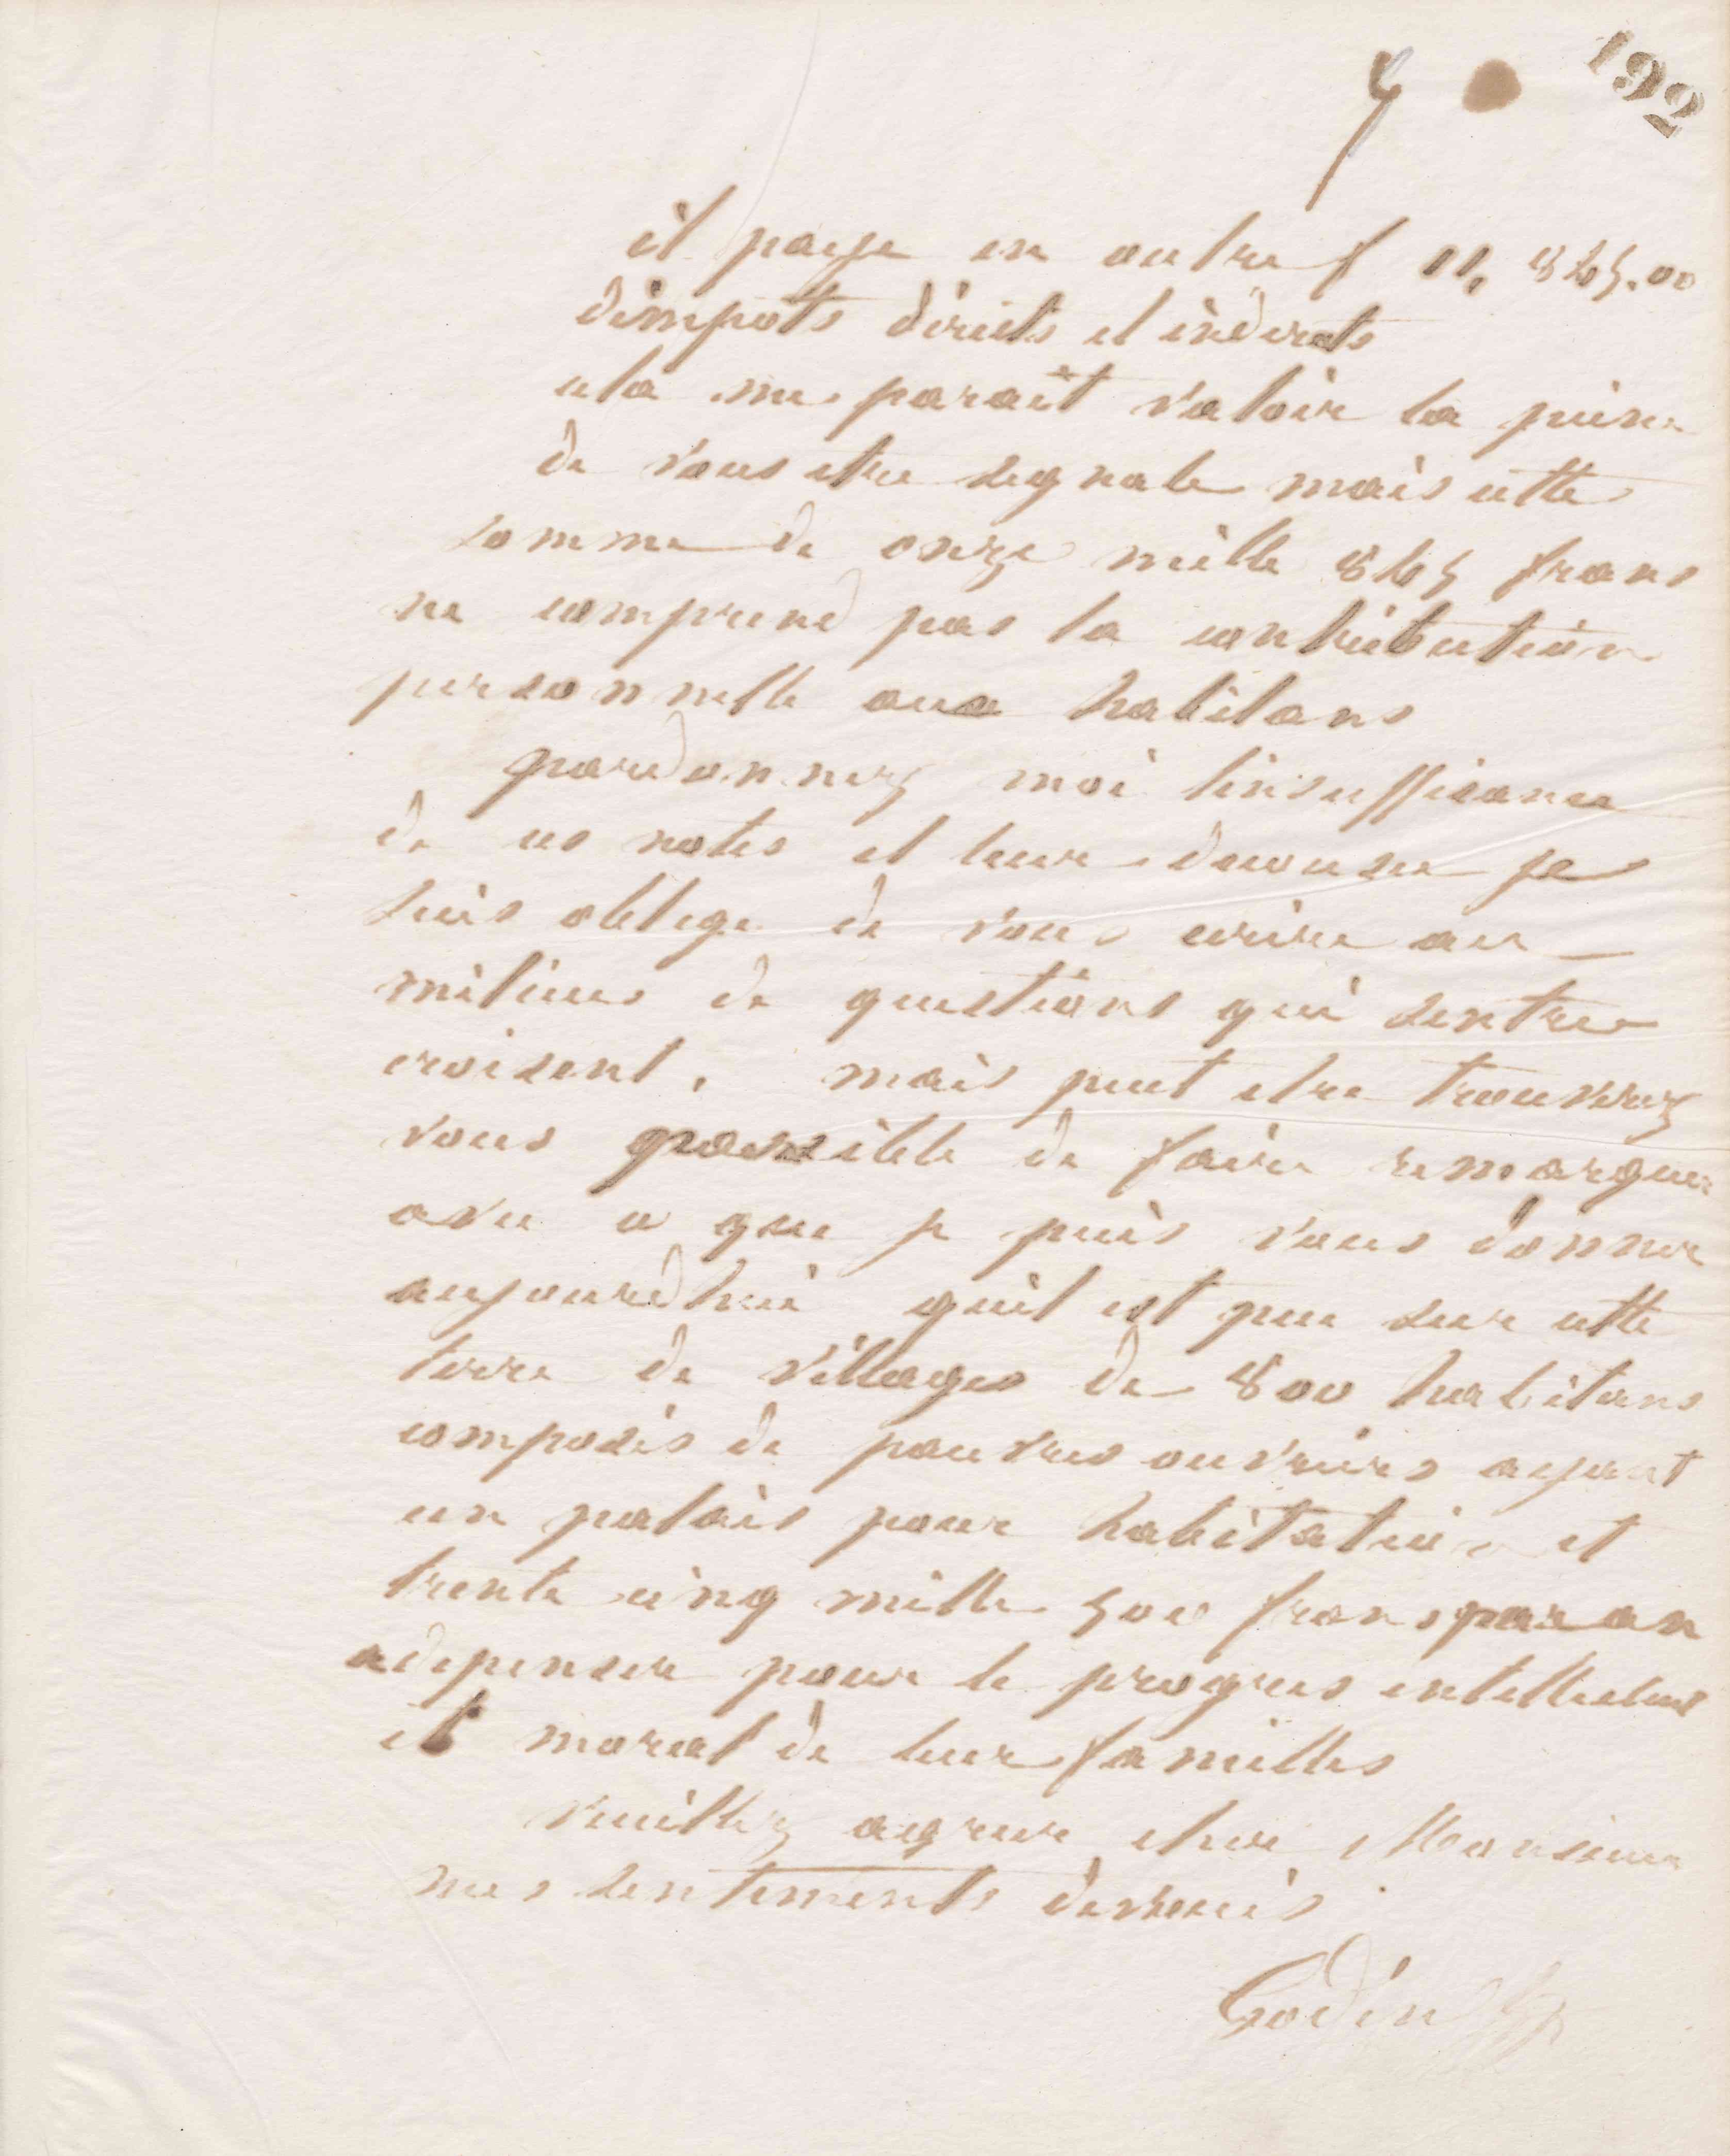 192
il paye en outre f 11, 865.00
dimpots dirècts et indirects
cela me parait valoir la peine
de vous etre segnale mais cette
somme de onze mille 865 frans
ne comprend pas la contribution
personnelle aux habitans
pardonnez moi linsuffisance
de ces notes et leur decousu je
suis oblege de vous ecrire au
milieu de questions qui sentre
croisent, mais peut etre trouverez
vous possible de faire remarquer
avec ce que je puis vous donner
aujourdhui quil est peu sur cette
terre de villages de 800 habitans
composés de pauvres ouvriers ayant
un palais pour habitation et
trente cinq mille 500 frans par an
a depenser pour le progres intellectuel
et moral de leur familles
Veuillez agreer cher Monsieur
mes sentements devoués
Godin